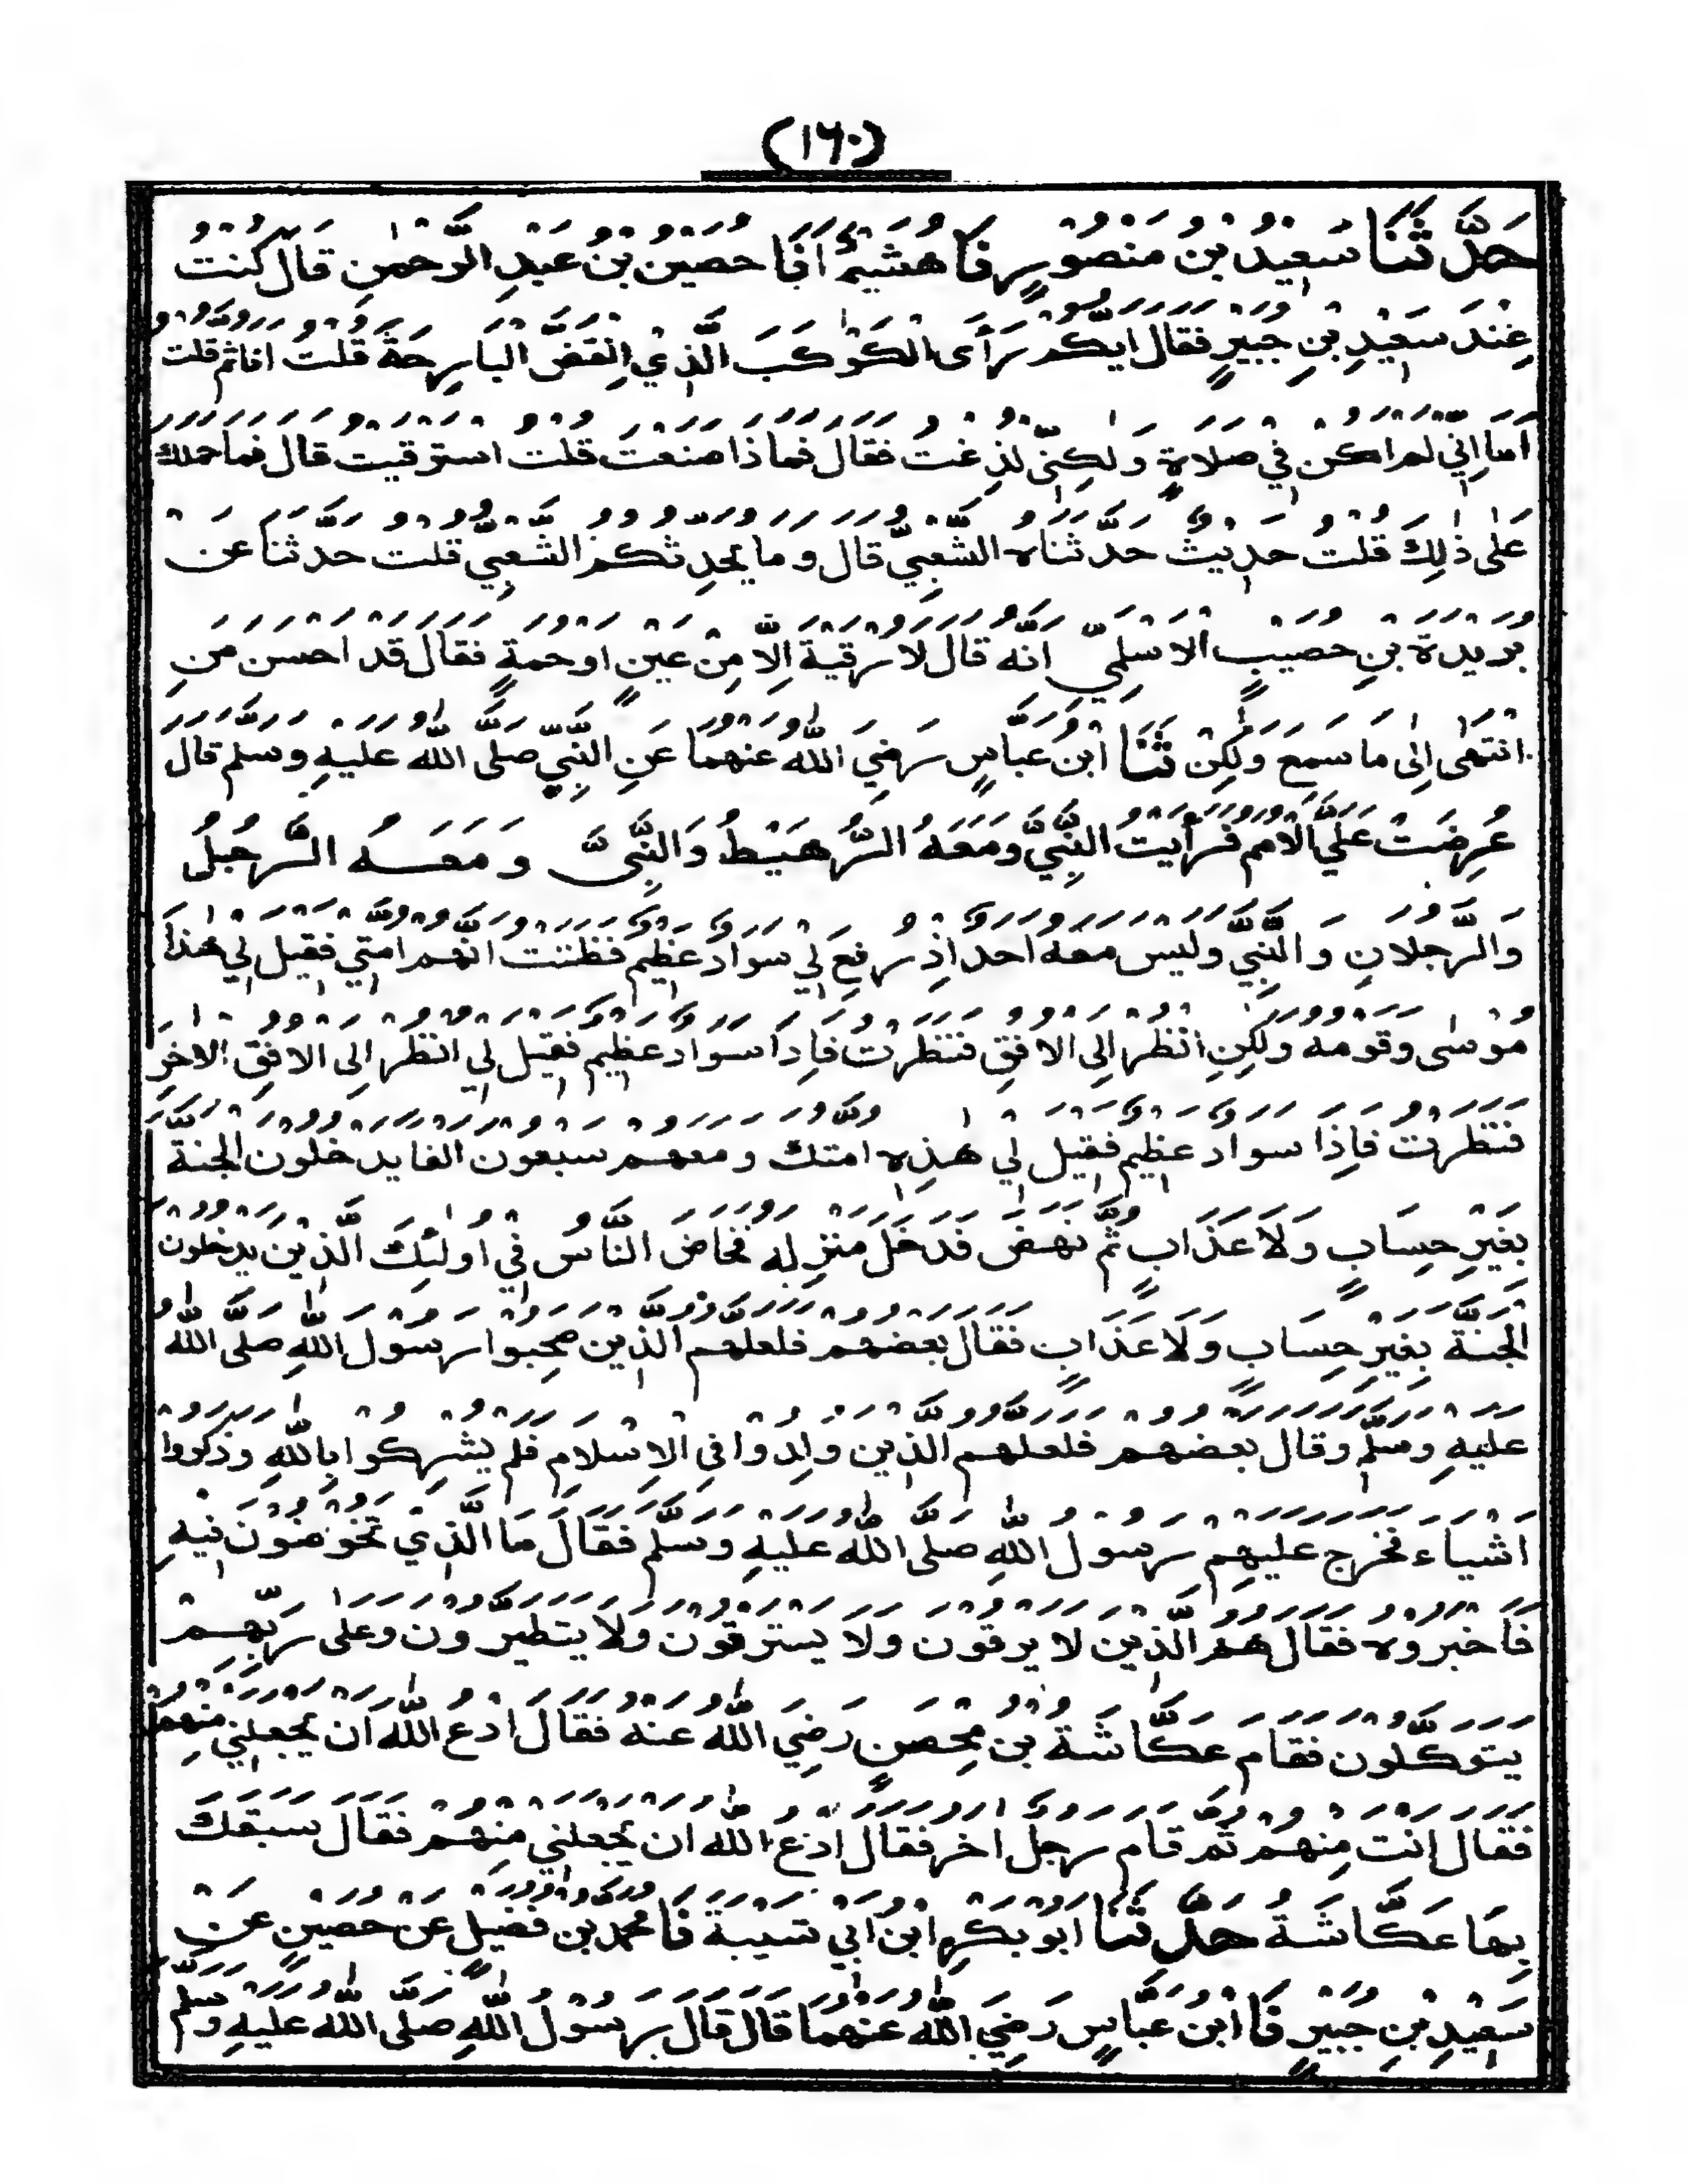 (١٦٠)
حَدَّثَنَا سَعِيْدُ بْنُ مَنْصُوْرٍ نَا هُشَيْمٌ اَنَا حُصَيْنُ بْنُ عَبْدِ الرَّحْمٰنِ قَالَ كُنْتُ
عِنْدَ سَعِيْدِ بْنِ جُبَيْرٍ فَقَالَ اَيُّكُمْ رَأَى الْكَوْكَبَ الَّذِيْ انْقَضَّ الْبَارِحَةَ قُلْتُ اَنَا ثُمَّ قُلْتُ
اَمَا اِنِّيْ لَمْ اَكُنْ فِيْ صَلَاةٍ وَلٰكِنِّيْ لُدِغْتُ فَقَالَ فَمَا ذَا صَنَعْتَ قُلْتُ اسْتَرْقَيْتُ قَالَ فَمَا حَمَلَكَ
عَلٰى ذٰلِكَ قُلْتُ حَدِيْثٌ حَدَّثَنَاهُ الشَّعْبِيُّ قَالَ وَمَا يُحَدِّثُكُمُ الشَّعْبِيُّ قُلْتُ حَدَّثَنَا عَنْ
بُرَيْدَةَ بْنِ حُصَيْبٍ الْاَسْلَمِيِّ اَنَّهُ قَالَ لَا رُقْيَةَ اِلَّا مِنْ عَيْنٍ اَوْ حُمَةٍ فَقَالَ قَدْ اَحْسَنَ مَنِ
انْتَهٰى اِلٰى مَا سَمِعَ وَلٰكِنْ ثَنَا ابْنُ عَبَّاسٍ رَضِيَ اللّٰهُ عَنْهُمَا عَنِ النَّبِيِّ صَلَّى اللّٰهُ عَلَيْهِ وَسَلَّمَ قَالَ
عُرِضَتْ عَلَيَّ الْاُمَمُ فَرَأَيْتُ النَّبِيَّ وَمَعَهُ الرُّهَيْطُ وَالنَّبِيَّ وَمَعَهُ الرَّجُلُ
وَالرَّجُلَانِ وَالنَّبِيَّ وَلَيْسَ مَعَهُ اَحَدٌ اِذْ رُفِعَ لِيْ سَوَادٌ عَظِيْمٌ فَظَنَنْتُ اَنَّهُمْ اُمَّتِيْ فَقِيْلَ لِيْ هٰذَا
مُوْسٰى وَقَوْمُهُ وَلٰكِنِ انْظُرْ اِلَى الْاُفُقِ فَنَظَرْتُ فَاِذَا سَوَادٌ عَظِيْمٌ فَقِيْلَ لِيْ انْظُرْ اِلَى الْاُفُقِ الْاٰخَرِ
فَنَظَرْتُ فَاِذَا سَوَادٌ عَظِيْمٌ فَقِيْلَ لِيْ هٰذِهِ اُمَّتُكَ وَمَعَهُمْ سَبْعُوْنَ اَلْفًا يَدْخُلُوْنَ الْجَنَّةَ
بِغَيْرِ حِسَابٍ وَلَا عَذَابٍ ثُمَّ نَهَضَ فَدَخَلَ مَنْزِلَهُ فَخَاضَ النَّاسُ فِيْ اُولٰئِكَ الَّذِيْنَ يَدْخُلُوْنَ
الْجَنَّةَ بِغَيْرِ حِسَابٍ وَلَا عَذَابٍ فَقَالَ بَعْضُهُمْ فَلَعَلَّهُمُ الَّذِيْنَ صَحِبُوْا رَسُوْلَ اللّٰهِ صَلَّى اللّٰهُ
عَلَيْهِ وَسَلَّمَ وَقَالَ بَعْضُهُمْ فَلَعَلَّهُمُ الَّذِيْنَ وُلِدُوْا فِي الْاِسْلَامِ فَلَمْ يُشْرِكُوْا بِاللّٰهِ وَذَكَرُوْا
اَشْيَاءَ فَخَرَجَ عَلَيْهِمْ رَسُوْلُ اللّٰهِ صَلَّى اللّٰهُ عَلَيْهِ وَسَلَّمَ فَقَالَ مَا الَّذِيْ تَخُوْضُوْنَ فِيْهِ
فَاَخْبَرُوْهُ فَقَالَ هُمُ الَّذِيْنَ لَا يَرْقُوْنَ وَلَا يَسْتَرْقُوْنَ وَلَا يَتَطَيَّرُوْنَ وَعَلٰى رَبِّهِمْ
يَتَوَكَّلُوْنَ فَقَامَ عُكَّاشَةُ بْنُ مِحْصَنٍ رَضِيَ اللّٰهُ عَنْهُ فَقَالَ ادْعُ اللّٰهَ اَنْ يَجْعَلَنِيْ مِنْهُمْ
فَقَالَ اَنْتَ مِنْهُمْ ثُمَّ قَامَ رَجُلٌ اٰخَرُ فَقَالَ ادْعُ اللّٰهَ اَنْ يَجْعَلَنِيْ مِنْهُمْ فَقَالَ سَبَقَكَ
بِهَا عُكَّاشَةُ حَدَّثَنَا اَبُوْ بَكْرِ ابْنُ اَبِيْ شَيْبَةَ نَا مُحَمَّدُ بْنُ فُضَيْلٍ عَنْ حُصَيْنٍ عَنْ
سَعِيْدِ بْنِ جُبَيْرٍ نَا ابْنُ عَبَّاسٍ رَضِيَ اللّٰهُ عَنْهُمَا قَالَ قَالَ رَسُوْلُ اللّٰهِ صَلَّى اللّٰهُ عَلَيْهِ وَسَلَّمَ